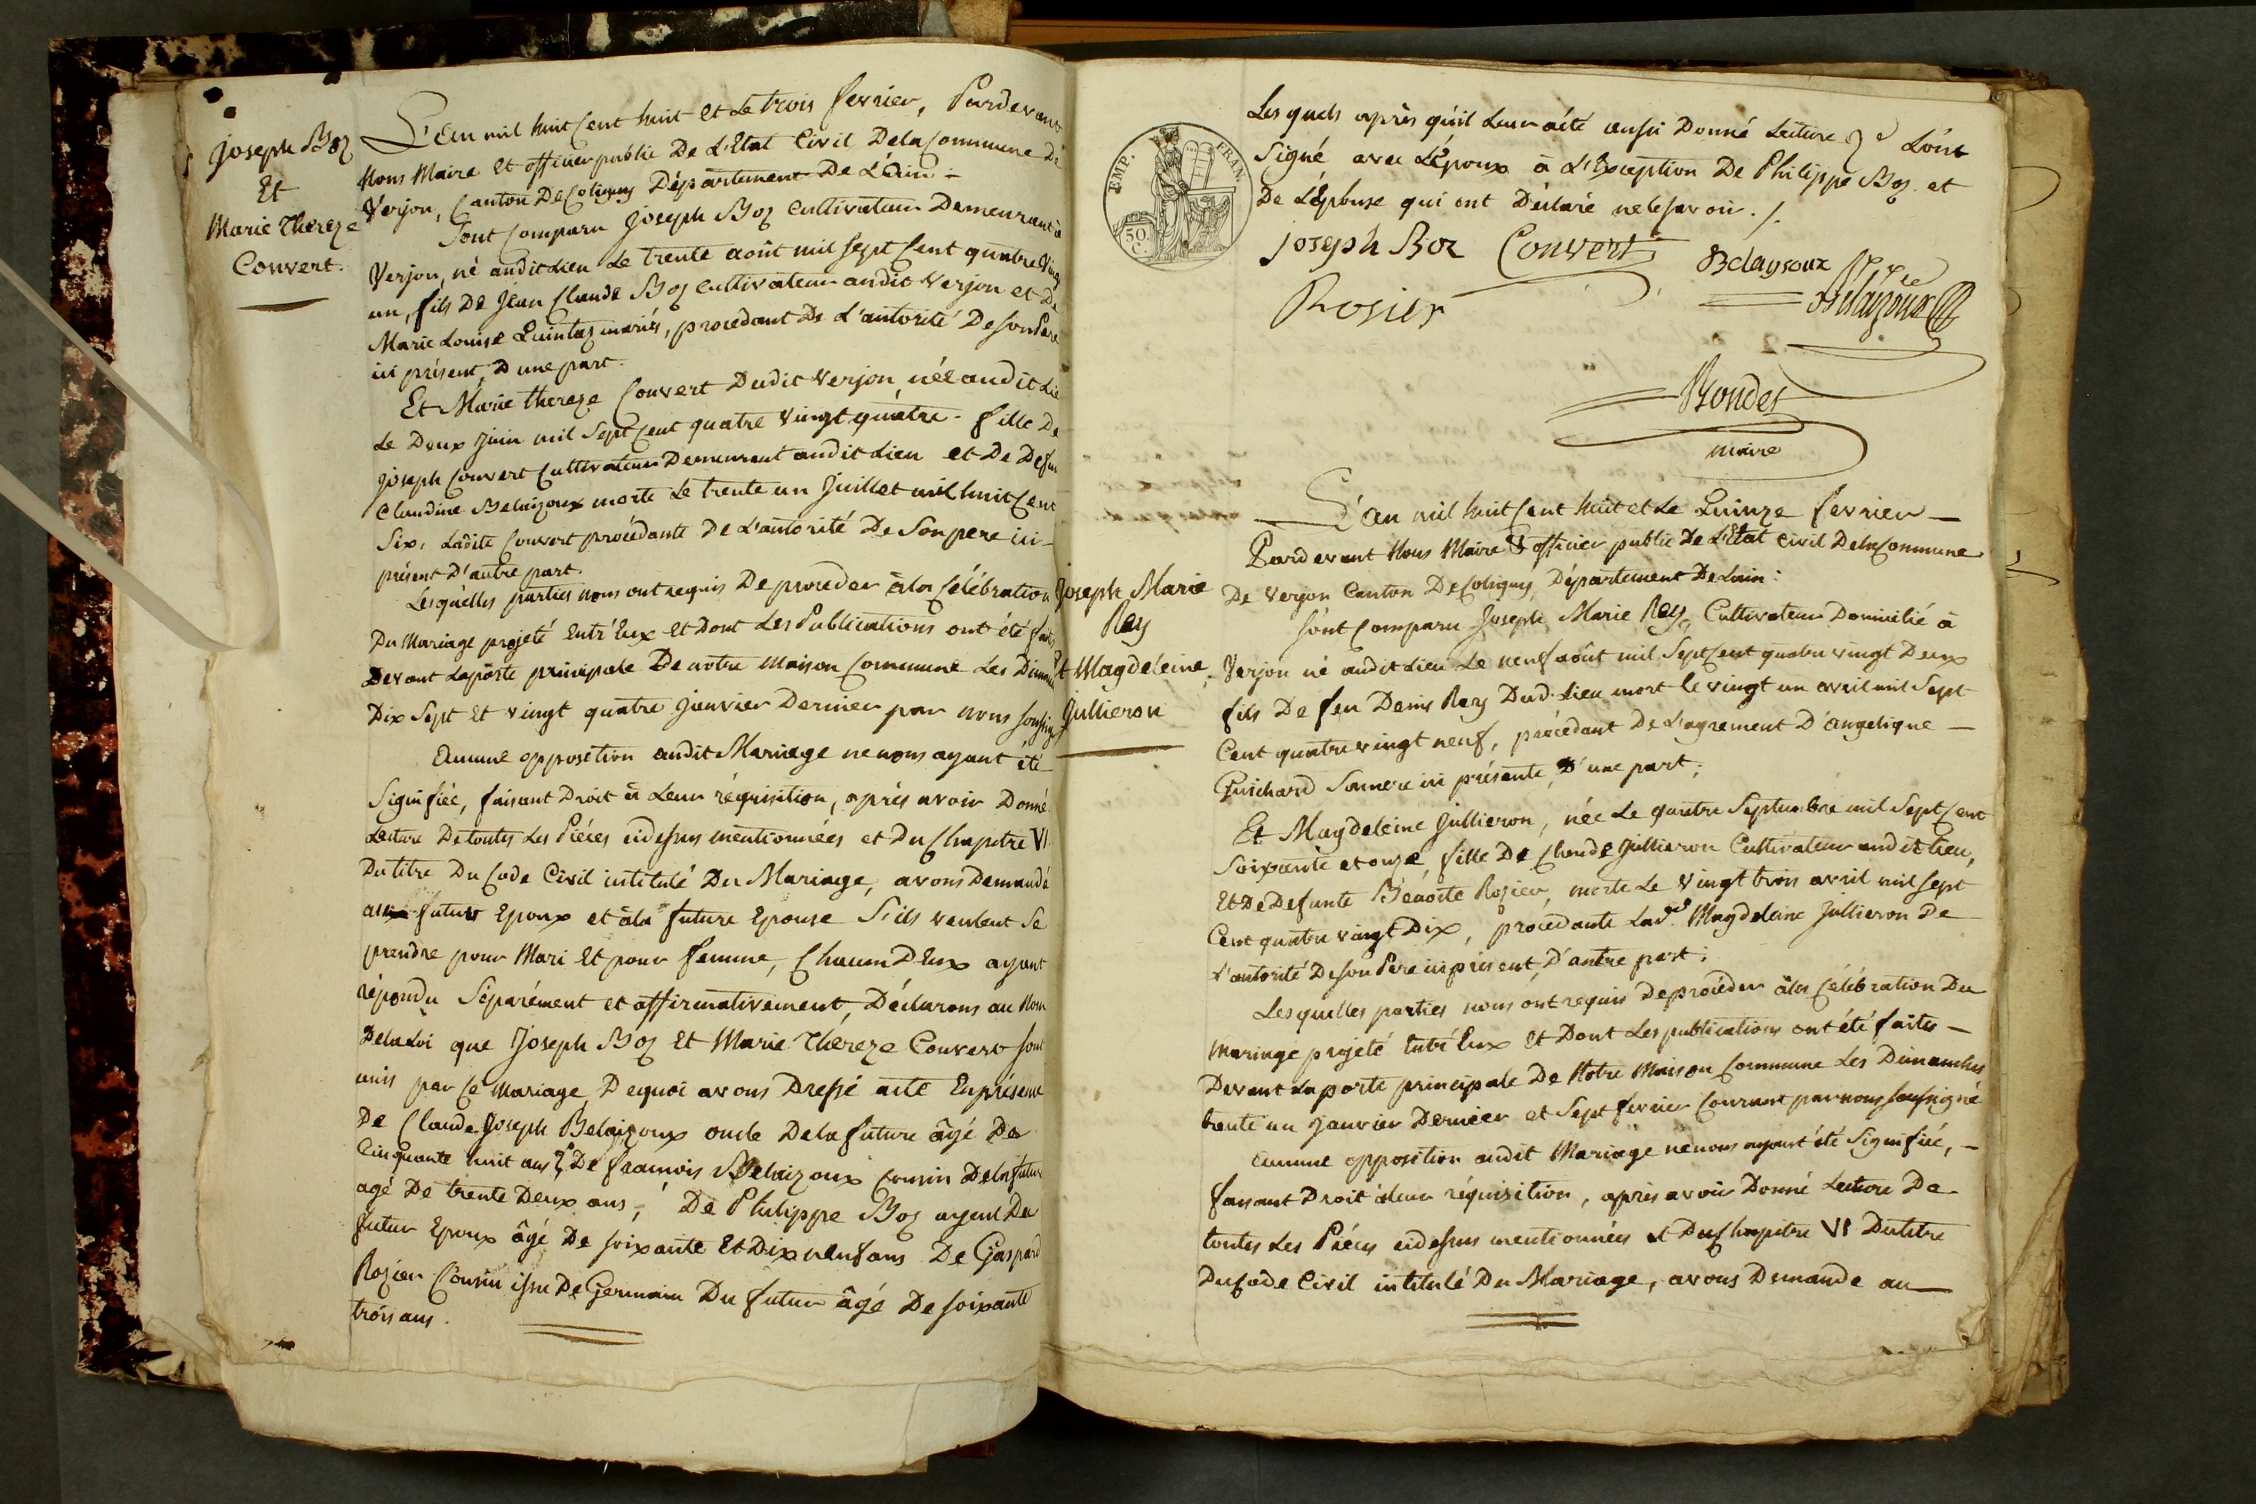 Joseph Boz
Et
Marie Thereze
Convert.
L'an mil huit Cent huit et Le trois fevrier, Pardevant
Nous Maire et officier public De L'Etat Civil Dela Commune De
Verjon, Canton De Coligny Département De L'Ain.-
Sont Comparu Joseph Boz cultivateur Demeurant à
Verjon, né audit Lieu Le trente août mil sept Cent quatre Vingt
un, fils De Jean Claude Boz cultivateur audit Verjon et De
Marie Louise Quintaz mariés, procedant De L'autorité De son Pere
ici présent, D'une part.
Et Marie thereze Convert Dudit Verjon née audit Lieu
Le Deux Juin mil Sept Cent quatre Vingt quatre. fille De
Joseph Convert Cultivateur Demeurant audit Lieu et De Defunte
Claudine Belaizoux morte Le trente un Juillet mil huit Cent
Six, Ladite Convert procédante De L'autorité De Son pere ici-
présent D'autre part.
Lesquelles parties nous ont requis De proceder à la Célébration
Du Mariage projeté Entr'Eux et Dont Les Publications ont été faites
Devant La porte principale De notre maison Commune Les Dimanches
Dix Sept Et vingt quatre Jenvier Dernier par nous soussigné
Aucune opposition audit Mariage ne nous ayant été
Signifiée, faisant Droit à Leur réquisition, après avoir Donné
Lecture De toutes Les Piéces cidessus mentionnées et Du Chapitre VI
Du titre Du Code Civil intitulé Du Mariage, avons Demandé
au futur Epoux et àla future Epouse S'ils veulent Se
prendre pour Mari Et pour femme, Chacun D'Eux ayant
répondu Séparément et affirmativement, Déclarons au Nom
Dela Loi que Joseph Boz Et Marie Théreze Convert sont
unis par Ce mariage, Dequoi avons Dressé acte En présence
De Claude Joseph Belaizoux oncle De la future âgé De
Cinquante huit ans, De francois Belaizoux cousin Dela future
agé De trente Deux ans, De Philippe Boz ayeul Du
futur Epoux âgé De soixante Et Dix neuf ans De Gaspard
Rozier Cousin issu De Germain Du futur âgé De soixante
trois ans.
Les quels après qu'il Leur a été aussi Donné Lecture L'ont
Signé avec L'Epoux à L'Exception De Philippe Boz et
De L'Epouse qui ont Déclaré ne le savoir ./.
EMP. FRAN.
50 C.
joseph Boz Convert Belaysoux
Rosier Belayzoux
Bondet
maire
Joseph Marie
Rey
Et Magdeleine
Jullieron
L'an mil huit Cent huit et Le Quinze fevrier -
Pardevant Nous Maire & officier public De L'Etat civil Dela Commune
De Verjon Canton De Coligny, Département De Lain:
Sont Comparu Joseph Marie Rey, Cultivateur Domicilié à
Verjon né audit Lieu Le neuf août mil Sept Cent quatre vingt Deux
fils De feu Denis Rey Dud. Lieu mort Le vingt un avril mil Sept
Cent quatre vingt neuf, procédant De L'agrement D'angelique -
Guichard Sa mere ici présente, D'une part;
Et Magdeleine Jullieron, née Le quatre Septembre mil Sept Cent
Soixante et onze fille De Claude Jullieron Cultivateur audit Lieu,
Et De Defunte Bénoite Rozier, morte Le vingt trois avril mil sept
Cent quatre vingt Dix, procédante Lad. Magdeleine Jullieron De
L'autorité De son Pere ici présent, D'autre part;
Lesquelles parties nous ont requis De procéder àla Célébration Du
mariage projeté Entr'Eux Et Dont Les publications ont été faites -
Devant La porte principale De Notre Maison Commune Les Dimanches
trente un Janvier Dernier et Sept fevrier Courant par nous soussigné
Aucune opposition audit Mariage ne nous ayant été Signifiée, -
faisant Droit àleur réquisition, après avoir Donné Lecture De
toutes Les Piéces cidessus mentionnées et Du Chapitre VI Du titre
Du Code Civil intitulé Du Mariage, avons Demandé au